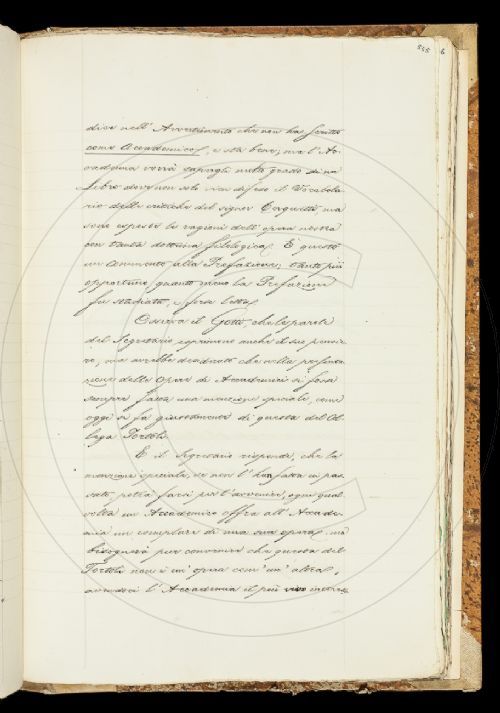 545 6
dice nell' Avvertimento che non ha scritto
come Accademico, e sta bene; ma l' Ac-
cademia vorrà sapergli molto grado di un
Libro dove non solo vien difeso il Vocabola-
rio dalle critiche del signor Cerquetti, ma
sono esposte le ragioni dell' opera nostra
con tanta dottrina filologica. È questo
un commento alla Prefazione; tanto più
opportuno, quanto meno la Prefazione
fu studiata, e forse letta.
Osserva il Gotti, che le parole
del Segretario esprimono anche il suo pensie-
ro; ma avrebbe desiderato che nella presenta-
zione delle opere di Accademici si fosse
sempre fatta una menzione speciale, come
oggi si fa giustamente di questa del Col-
lega Tortoli.
E il Segretario risponde, che la
menzione speciale, se non l' ha fatta in pas-
sato, potrà farsi per l' avvenire, ogni qual-
volta un Accademico offra all' Accade-
mia un esemplare di una sua opera; ma
bisognerà pur convenire che questa del
Tortoli non è un' opera com' un' altra,
avendoci l' Accademia il più vivo interes-